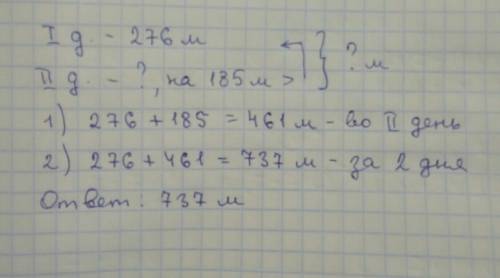 I д. - 276 м
II д. - ?, на 185 м > } ? м
1) 276 + 185 = 461 м - во II день
2) 276 + 461 = 737 м - за 2 дня
Ответ: 737 м